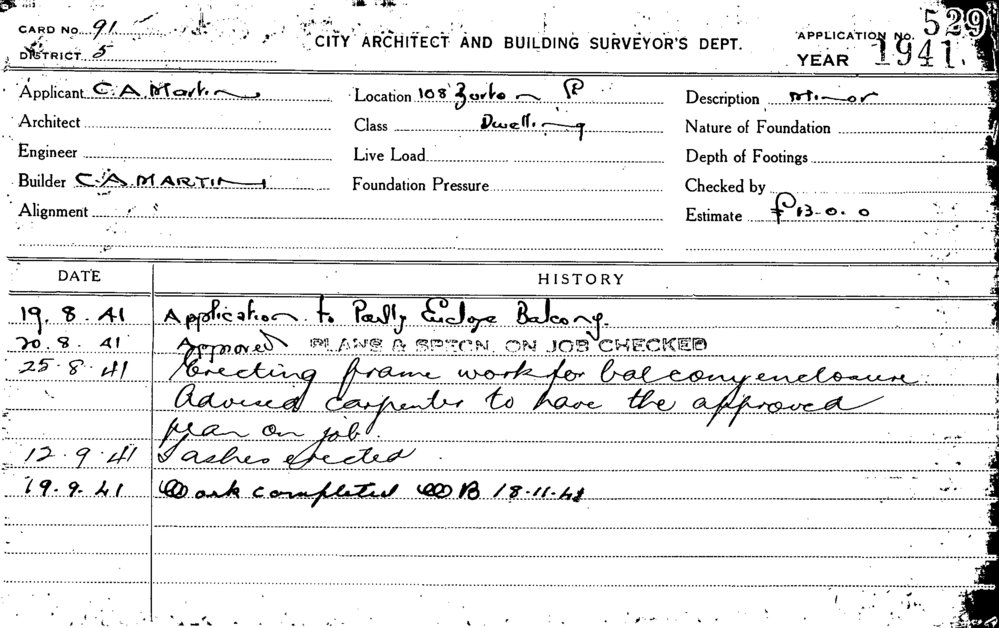 CARD No. 91
DISTRICT 5
CITY ARCHITECT AND BUILDING SURVEYOR'S DEPT.
APPLICATION No. 529
YEAR 1941.
Applicant C. A. Martin
Location 108
Description Minor
Architect
Class Dwelling
Nature of Foundation
Engineer
Live Load
Depth of Footings
Builder C. A. MARTIN
Foundation Pressure
Checked by
Alignment
Estimate £13-0.0
DATE HISTORY
19. 8. 41 Application to Partly Enclose Balcony.
20. 8. 41 Approved PLANS & SPECN. ON JOB CHECKED
25. 8. 41 Erecting frame work for balcony enclosure.
Advised carpenter to have the approved
plan on job.
12. 9. 41 Sashes erected.
19. 9. 41 Work completed WB 18.11.41